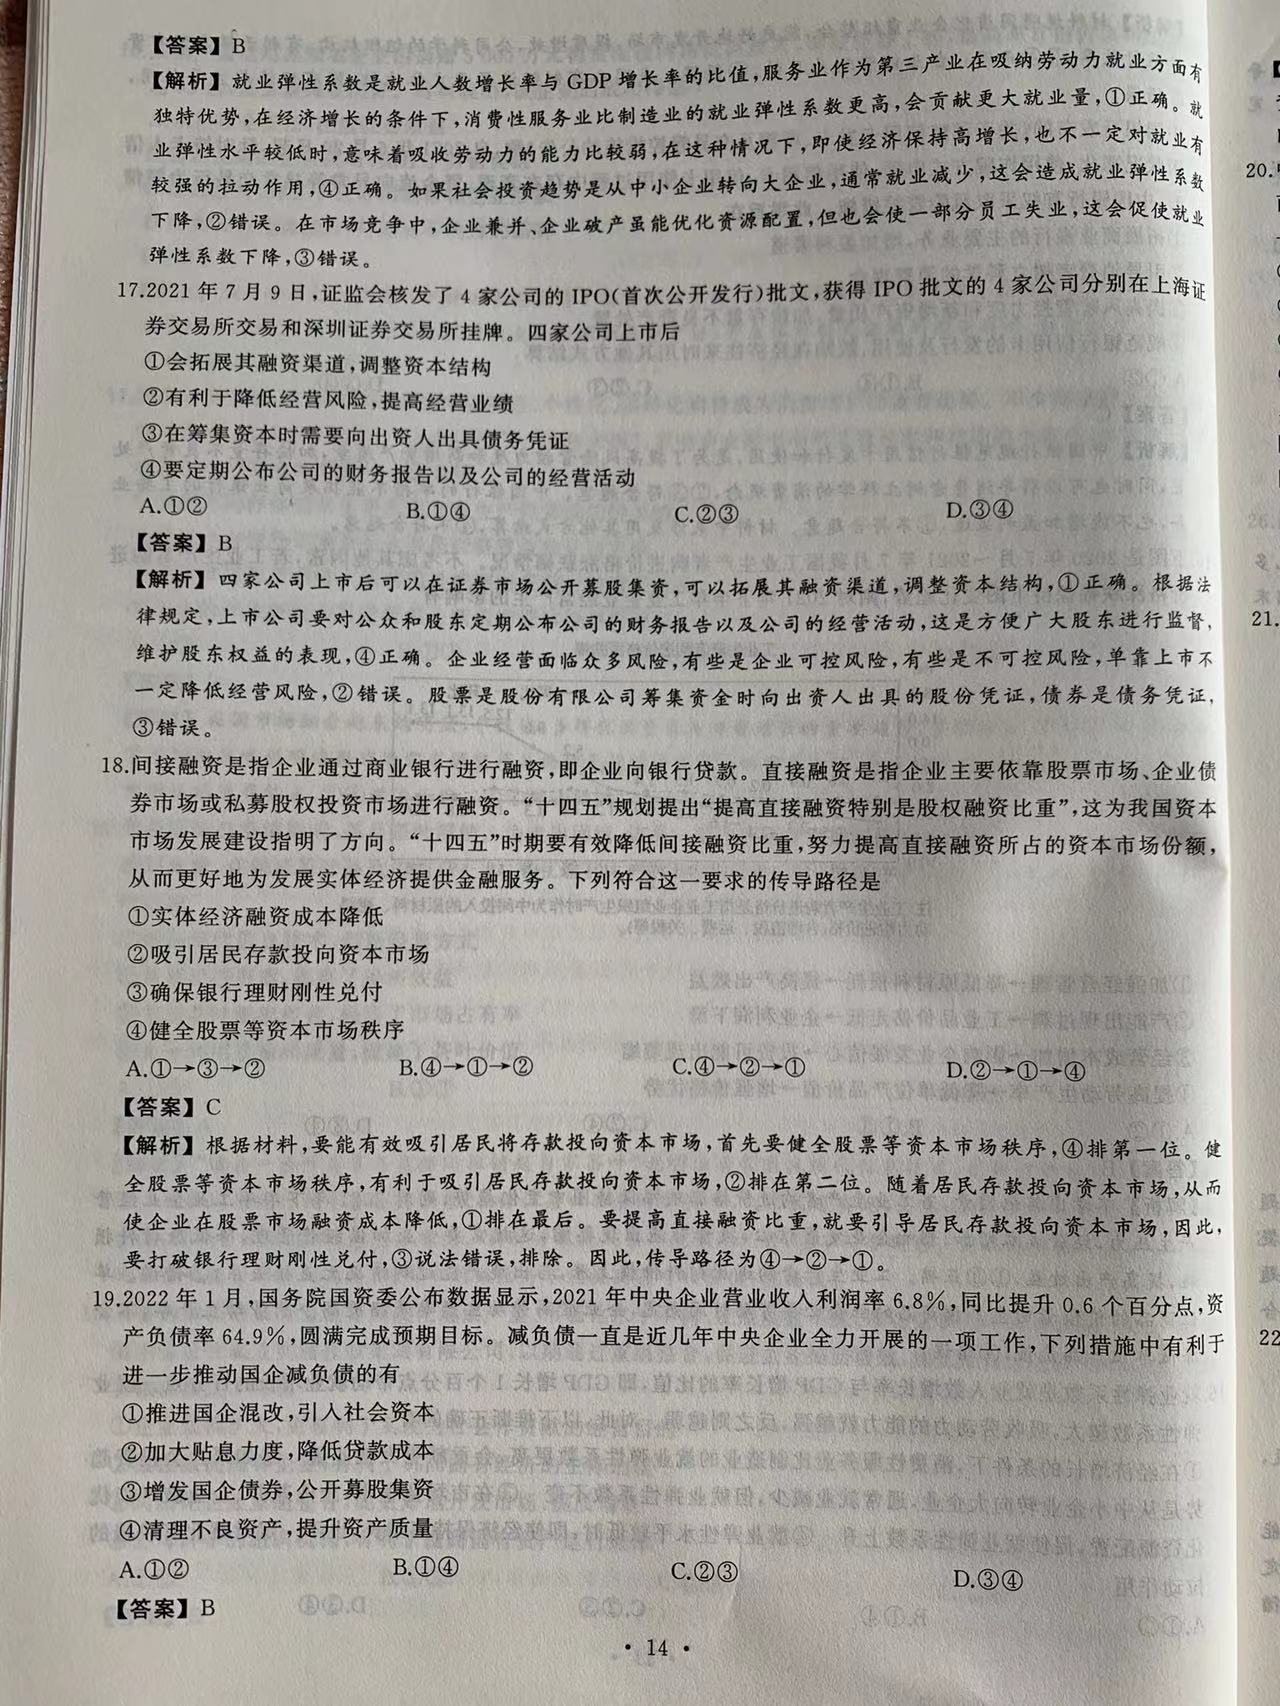 【答案】B
【解析】就业弹性系数是就业人数增长率与GDP增长率的比值,服务业作为第三产业在吸纳劳动力就业方面有
独特优势,在经济增长的条件下,消费性服务业比制造业的就业弹性系数更高,会贡献更大就业量,①正确。就
业弹性水平较低时,意味着吸收劳动力的能力比较弱,在这种情况下,即使经济保持高增长,也不一定对就业有
较强的拉动作用,④正确。如果社会投资趋势是从中小企业转向大企业,通常就业减少,这会造成就业弹性系数
下降,②错误。在市场竞争中,企业兼并、企业破产虽能优化资源配置,但也会使一部分员工失业,这会促使就业
弹性系数下降,③错误。
17.2021年7月9日,证监会核发了4家公司的IPO(首次公开发行)批文,获得IPO批文的4家公司分别在上海证
券交易所交易和深圳证券交易所挂牌。四家公司上市后
①会拓展其融资渠道,调整资本结构
②有利于降低经营风险,提高经营业绩
③在筹集资本时需要向出资人出具债务凭证
④要定期公布公司的财务报告以及公司的经营活动
A.①② B.①④ C.②③ D.③④
【答案】B
【解析】四家公司上市后可以在证券市场公开募股集资,可以拓展其融资渠道,调整资本结构,①正确。根据法
律规定,上市公司要对公众和股东定期公布公司的财务报告以及公司的经营活动,这是方便广大股东进行监督,
维护股东权益的表现,④正确。企业经营面临众多风险,有些是企业可控风险,有些是不可控风险,单靠上市不
一定降低经营风险,②错误。股票是股份有限公司筹集资金时向出资人出具的股份凭证,债券是债务凭证,
③错误。
18.间接融资是指企业通过商业银行进行融资,即企业向银行贷款。直接融资是指企业主要依靠股票市场、企业债
券市场或私募股权投资市场进行融资。“十四五”规划提出“提高直接融资特别是股权融资比重”,这为我国资本
市场发展建设指明了方向。“十四五”时期要有效降低间接融资比重,努力提高直接融资所占的资本市场份额,
从而更好地为发展实体经济提供金融服务。下列符合这一要求的传导路径是
①实体经济融资成本降低
②吸引居民存款投向资本市场
③确保银行理财刚性兑付
④健全股票等资本市场秩序
A.①→③→② B.④→①→② C.④→②→① D.②→①→④
【答案】C
【解析】根据材料,要能有效吸引居民将存款投向资本市场,首先要健全股票等资本市场秩序,④排第一位。健
全股票等资本市场秩序,有利于吸引居民存款投向资本市场,②排在第二位。随着居民存款投向资本市场,从而
使企业在股票市场融资成本降低,①排在最后。要提高直接融资比重,就要引导居民存款投向资本市场,因此,
要打破银行理财刚性兑付,③说法错误,排除。因此,传导路径为④→②→①。
19.2022年1月,国务院国资委公布数据显示,2021年中央企业营业收入利润率6.8%,同比提升0.6个百分点,资
产负债率64.9%,圆满完成预期目标。减负债一直是近几年中央企业全力开展的一项工作,下列措施中有利于
进一步推动国企减负债的有
①推进国企混改,引入社会资本
②加大贴息力度,降低贷款成本
③增发国企债券,公开募股集资
④清理不良资产,提升资产质量
A.①② B.①④ C.②③ D.③④
【答案】B
• 14 •
20.
21.
22